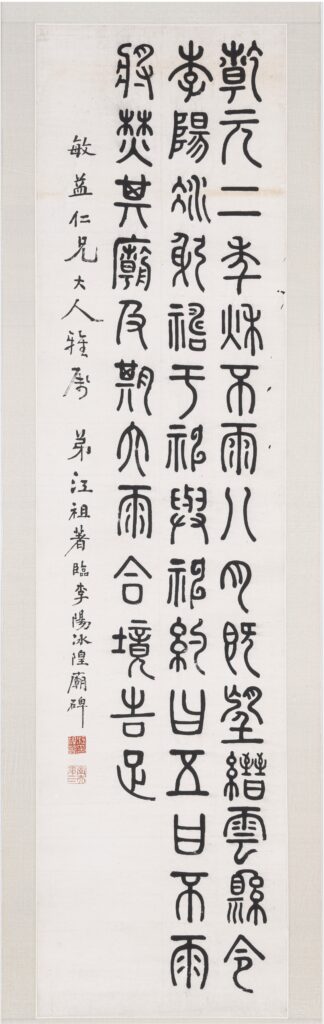 乾元二年秋不雨八月既望縉雲縣令
李陽冰躬禱于神與神約曰五日不雨
將焚其廟及期大雨合境告足
敏益仁兄大人雅屬 弟汪祖著臨李陽冰隍廟碑